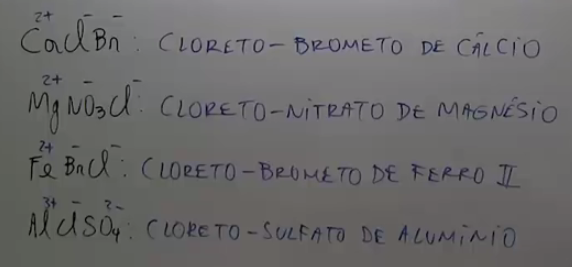 Ca²⁺Cl⁻Br⁻: CLORETO-BROMETO DE CÁLCIO
Mg²⁺NO₃⁻Cl⁻: CLORETO-NITRATO DE MAGNÉSIO
Fe²⁺Br⁻Cl⁻: CLORETO-BROMETO DE FERRO II
Al³⁺Cl⁻SO₄²⁻: CLORETO-SULFATO DE ALUMÍNIO